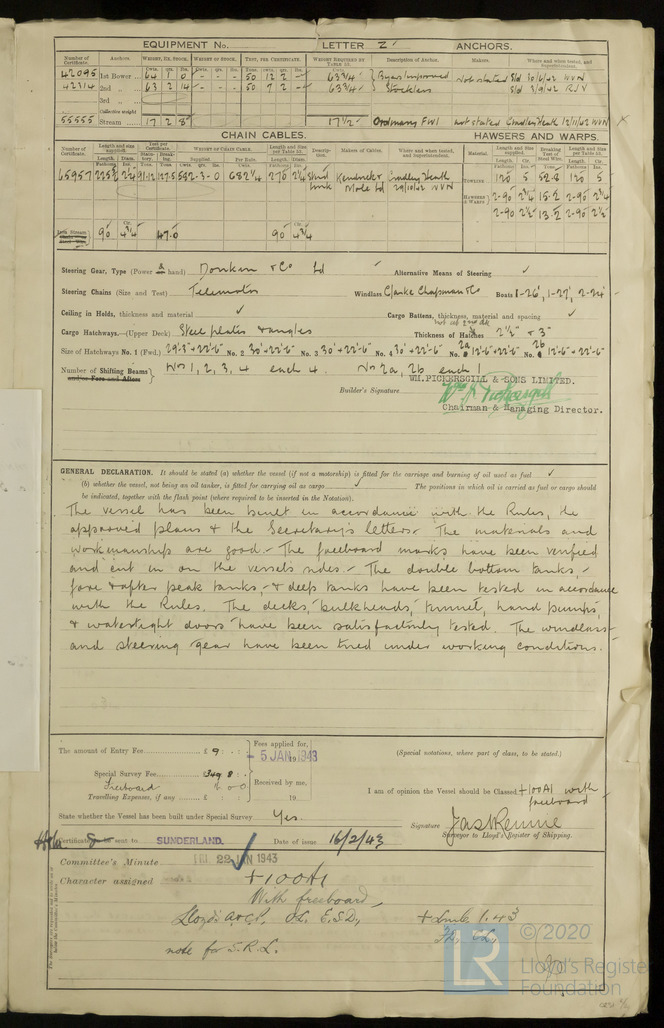 EQUIPMENT No. LETTER Z ANCHORS.
Number of Certificate. Anchors. WEIGHT, EX. STOCK. WEIGHT OF STOCK. TEST, PER CERTIFICATE. WEIGHT REQUIRED BY TABLE 53. Description of Anchor. Makers. Where and when tested, and Superintendent.
42095 1st Bower 64 1 0 - - - 50 12 2 - 63¾ Byers Improved Not stated Sld 30/6/42
42314 2nd 63 2 14 - - - 50 7 2 - 63¾ Stockless Sld 3/9/42
3rd
Collective weight
55555 Stream 17 2 8 17½ Ordinary FWI not stated Cradley Heath 12/11/42
CHAIN CABLES. HAWSERS AND WARPS.
Number of Certificate. Length and size supplied. Test per Certificate. WEIGHT OF CHAIN CABLE. Length and Size per Table 53. Description. Makers of Cables. Where and when tested, and Superintendent. Material. Length and Size supplied. Breaking Test of Steel Wire. Length and size per Table 53.
65957 Stud link Kendrick & Mole Ld Cradley Heath 29/10/42
Towlines 120 5 52.8 120 5
Hawsers & Warps 2-90 2¾ 15.2 2-90 2¾
2-90 2½ 13.2 2-90 2½
90 4¾ 47.0 90 4¾
Steering Gear, Type (Power & hand) Donkin & Co Ld Alternative Means of Steering ✓
Steering Chains (Size and Test) Telemotor Windlass Clarke Chapman & Co Boats 1-26', 1-27', 2-24'
Ceiling in Holds, thickness and material ✓ Cargo Battens, thickness, material and spacing ✓
Cargo Hatchways.—(Upper Deck) Steel plates & angles Thickness of Hatches 2½" & 3"
Size of Hatchways No. 1 (Fwd.) 29'-3"×22'-6" No. 2 30'×22'-6" No. 3 30'×22'-6" No. 4 30'×22'-6" No. 2a 12'-6"×22'-6" No. 2b 12'-6"×22'-6"
Number of Shifting Beams and/or Fore and Afters No 1, 2, 3, 4 each 4. No 2a, 2b each 1
WM. PICKERSGILL & SONS LIMITED.
Builder's Signature Wm J Pickersgill
Chairman & Managing Director.
GENERAL DECLARATION. It should be stated (a) whether the vessel (if not a motorship) is fitted for the carriage and burning of oil used as fuel ✓
(b) whether the vessel, not being an oil tanker, is fitted for carrying oil as cargo ✓ The positions in which oil is carried as fuel or cargo should
be indicated, together with the flash point (where required to be inserted in the Notation).
The vessel has been built in accordance with the Rules, the
approved plans & the Secretary's letters. The materials and
workmanship are good. The freeboard marks have been verified
and cut in on the vessel's sides. The double bottom tanks,
fore & after peak tanks, & deep tanks have been tested in accordance
with the Rules. The decks, bulkheads, tunnel, hand pumps,
& watertight doors have been satisfactorily tested. The windlass
and steering gear have been tried under working conditions.
The amount of Entry Fee £ 9 : : Fees applied for,
- 5 JAN 1943
(Special notations, where part of class, to be stated.)
Special Survey Fee £ 349 8 :
Freeboard
Received by me,
I am of opinion the Vessel should be Classed +100A1 with
freeboard
Travelling Expenses, if any £ : : 19
State whether the Vessel has been built under Special Survey Yes.
Signature Jas Rennie
Surveyor to Lloyd's Register of Shipping.
Certificate to be sent to SUNDERLAND. Date of issue 16/2/43
Committee's Minute FRI 22 JAN 1943
Character assigned +100A1
With freeboard
Lloyd's A&CP. OL. E.S.D. +LMC 1.43
note for S.R.L.
LR © 2020
Lloyd's Register
Foundation